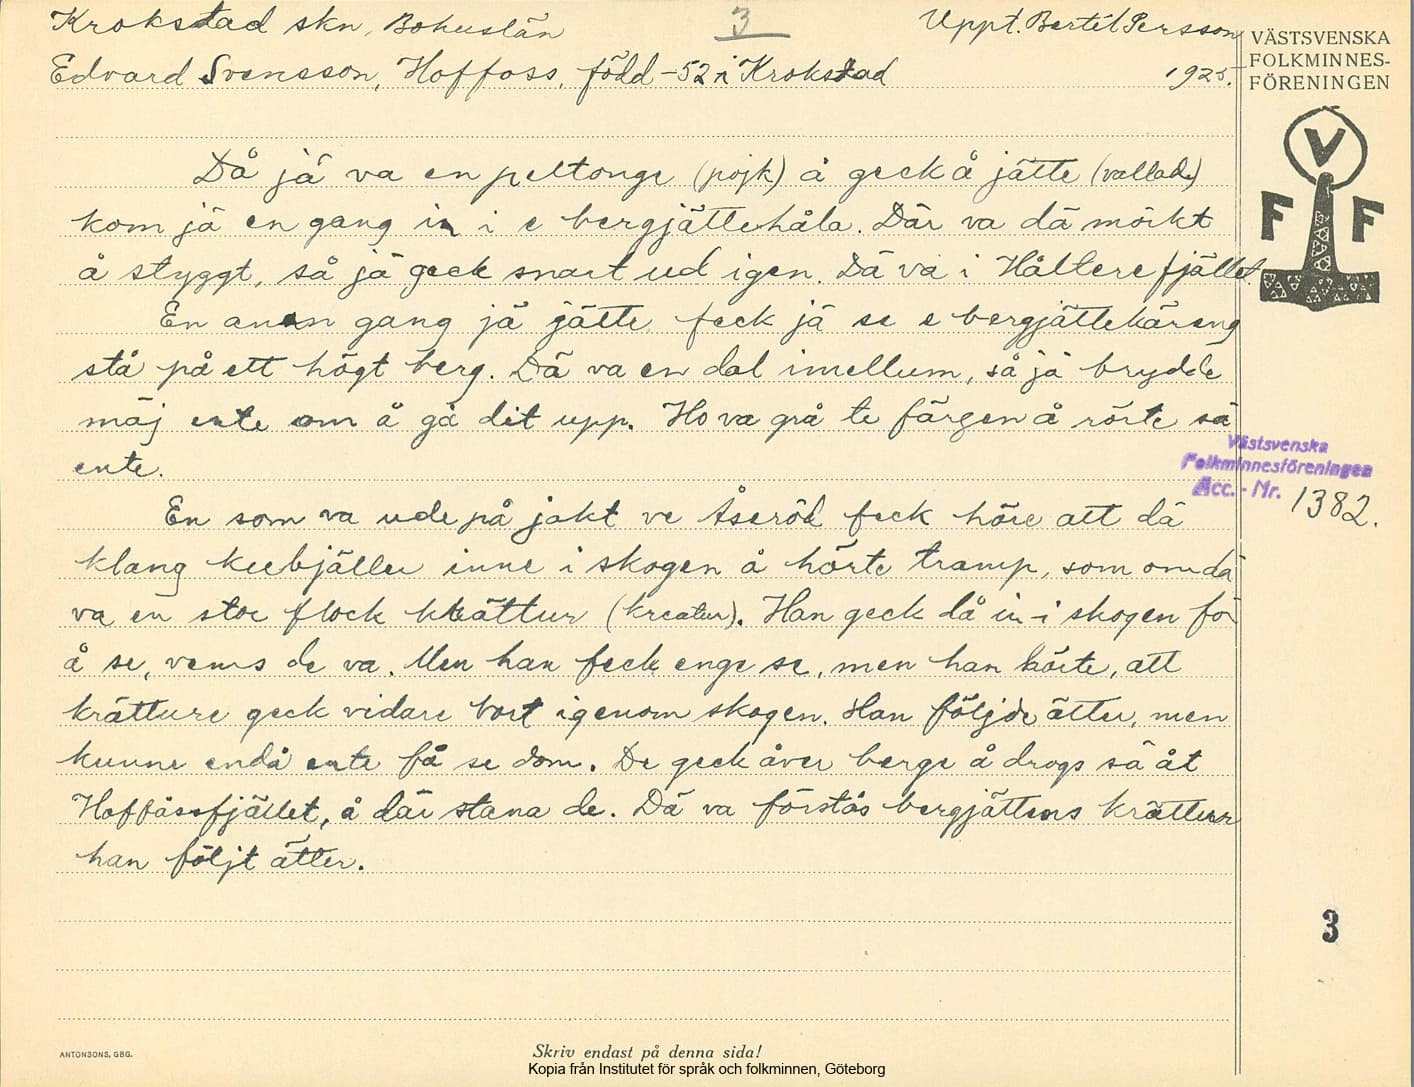 Krokstad skn, Bohuslän 3 Uppt. Bertil Persson
Edvard Svensson, Hoffoss, född -52 i Krokstad 1925.
VÄSTSVENSKA
FOLKMINNES-
FÖRENINGEN
V
F F
Då jä va en peltonge (pojk) å geck å jätte (vallade)
kom jä en gang in i e bergjättehåla. Där va dä mörkt
å styggt, så jä geck snart ud igen. Dä va i Hålterefjället.
En anen gang jä jätte feck jä se e bergjättekäreng
stå på ett högt berg. Dä va en dal imellum, så jä brydde
mäj ente om å gå dit upp. Ho va grå te färgen å rörte sä
ente.
Västsvenska
Folkminnesföreningen
Acc. - Nr. 1382.
En som va ude på jakt ve Åseröd feck höre att dä
klang kubjäller inne i skogen å hörte tramp, som om dä
va en stor flock krättur (kreatur). Han geck då in i skogen för
å se, vems de va. Men han feck enge se, men han hörte, att
krätture geck vidare bort igenom skogen. Han följde ätter, men
kunne endå ente få se dom. De geck åver berge å drogs sä åt
Hoffåssfjället, å där stana de. Dä va förstås bergjättens krättur
han följt ätter.
3
ANTONSONS, GBG.
Skriv endast på denna sida!
Kopia från Institutet för språk och folkminnen, Göteborg